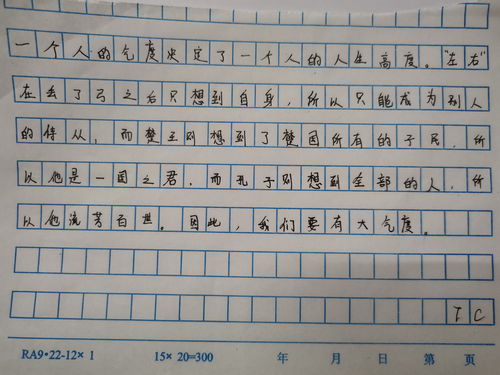 一个人的气度决定了一个人的人生高度。“左右”
在丢了弓之后只想到自身，所以只能成为别人
的侍从，而楚王则想到了楚国所有的子民，所
以他是一国之君，而孔子则想到全部的人，所
以他流芳百世。因此，我们要有大气度。
TC
RA9·22-12×1 15×20=300 年 月 日 第 页